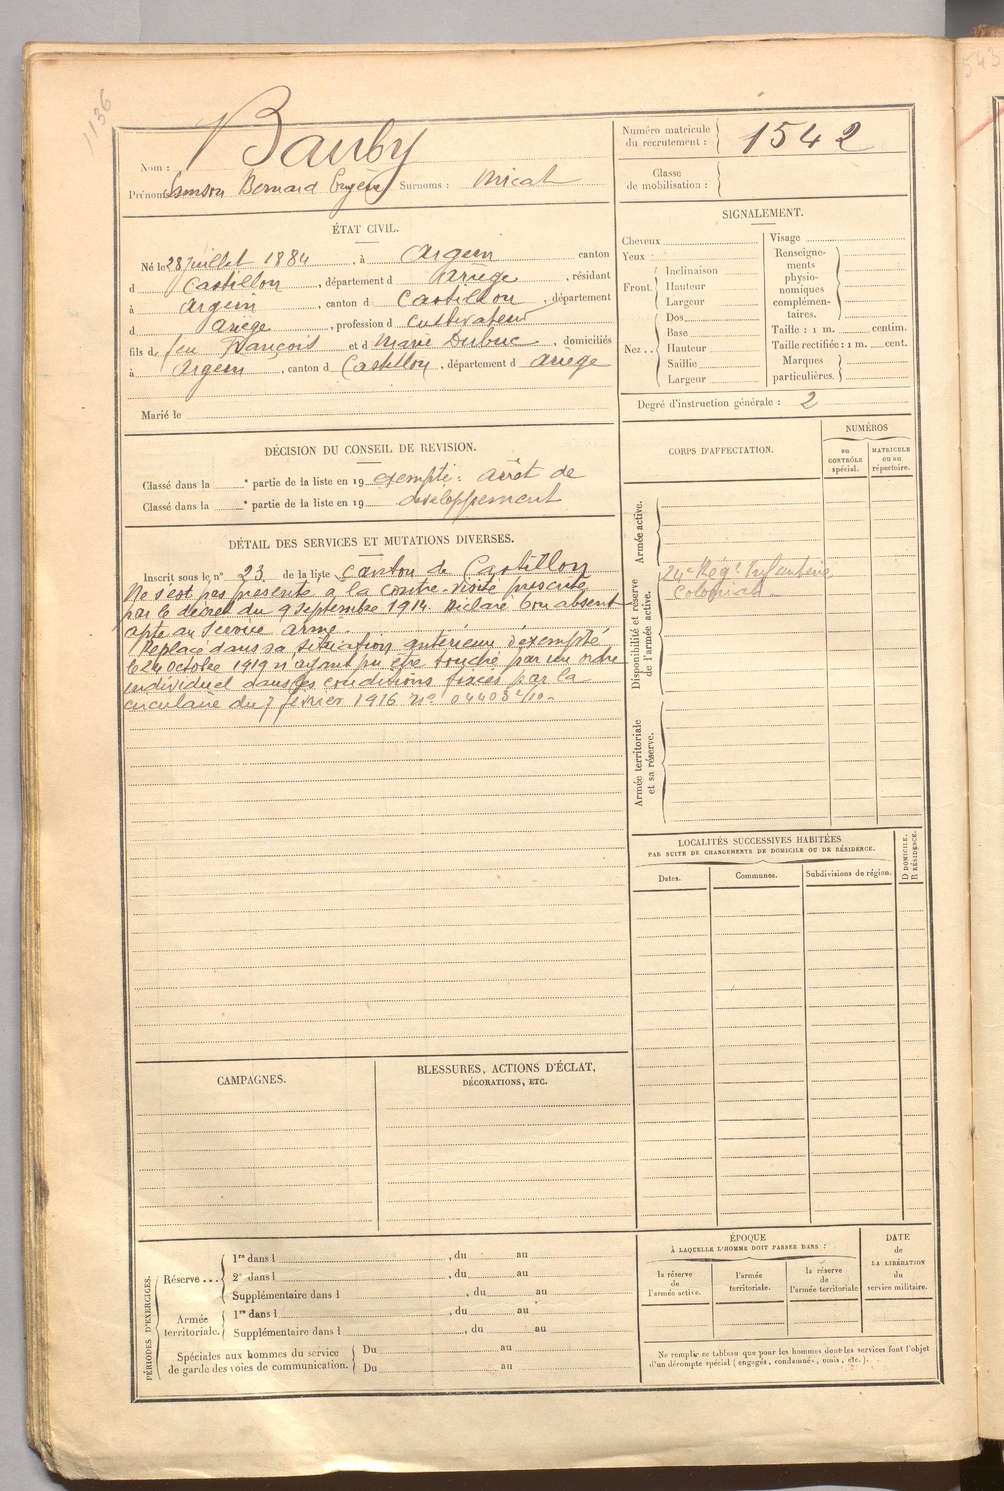 1136
Nom : Bauby
Prénoms : Samson Bernard Eugène Surnoms : Micat
Numéro matricule du recrutement : 1542
Classe de mobilisation :
ÉTAT CIVIL.
Né le 28 Juillet 1884, à Argein canton
d Castillon, département d Ariège, résidant
à Argein, canton d Castillon, département
d Ariège, profession d Cultivateur
fils de feu François et d Marie Dubuc, domiciliés
à Argein, canton d Castillon, département d Ariège
Marié le
SIGNALEMENT.
Cheveux
Yeux
Front. Inclinaison
Hauteur
Largeur
Nez .. Dos
Base
Hauteur
Saillie
Largeur
Visage
Renseigne-
ments
physio-
nomiques
complémen-
taires.
Taille : 1 m. centim.
Taille rectifiée : 1 m. cent.
Marques
particulières.
Degré d'instruction générale : 2
DÉCISION DU CONSEIL DE REVISION.
Classé dans la e partie de la liste en 19 exempté : arrêt de
Classé dans la e partie de la liste en 19 developpement
DÉTAIL DES SERVICES ET MUTATIONS DIVERSES.
Inscrit sous le n° 23 de la liste canton de Castillon
Ne s'est pas présenté à la contre-visite prescrite
par le décret du 9 septembre 1914. Déclaré bon absent
apte au service armé.
Replacé dans sa situation antérieure d'exempté
le 24 octobre 1919 n'ayant pu être touché par un ordre
individuel dans les conditions fixées par la
circulaire du 7 février 1916 no 04403 2/10.
CORPS D'AFFECTATION.
NUMÉROS
au CONTRÔLE spécial.
MATRICULE ou au répertoire.
Armée active.
Disponibilité et réserve de l'armée active.
24e Régt Infanterie
Colonial
Armée territoriale et sa réserve.
LOCALITÉS SUCCESSIVES HABITÉES
PAR SUITE DE CHANGEMENTS DE DOMICILE OU DE RÉSIDENCE.
Dates.
Communes.
Subdivisions de région.
D DOMICILE.
R RÉSIDENCE.
CAMPAGNES.
BLESSURES, ACTIONS D'ÉCLAT,
DÉCORATIONS, ETC.
PÉRIODES D'EXERCICES.
Réserve ... 1re dans l , du au
2e dans l , du au
Supplémentaire dans l , du au
Armée territoriale. 1re dans l , du au
Supplémentaire dans l , du au
Spéciales aux hommes du service
de garde des voies de communication.
Du au
Du au
ÉPOQUE
À LAQUELLE L'HOMME DOIT PASSER DANS :
la réserve de l'armée active.
l'armée territoriale.
la réserve de l'armée territoriale
DATE
de
LA LIBÉRATION
du
service militaire.
Ne remplir ce tableau que pour les hommes dont les services font l'objet
d'un décompte spécial (engagés, condamnés, omis, etc.).